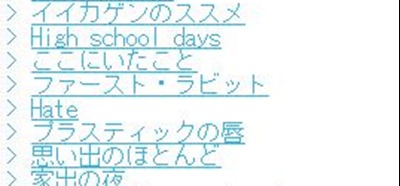 > イイカゲンのススメ
> High school days
> ここにいたこと
> ファースト・ラビット
> Hate
> プラスティックの唇
> 思い出のほとんど
> 家出の夜